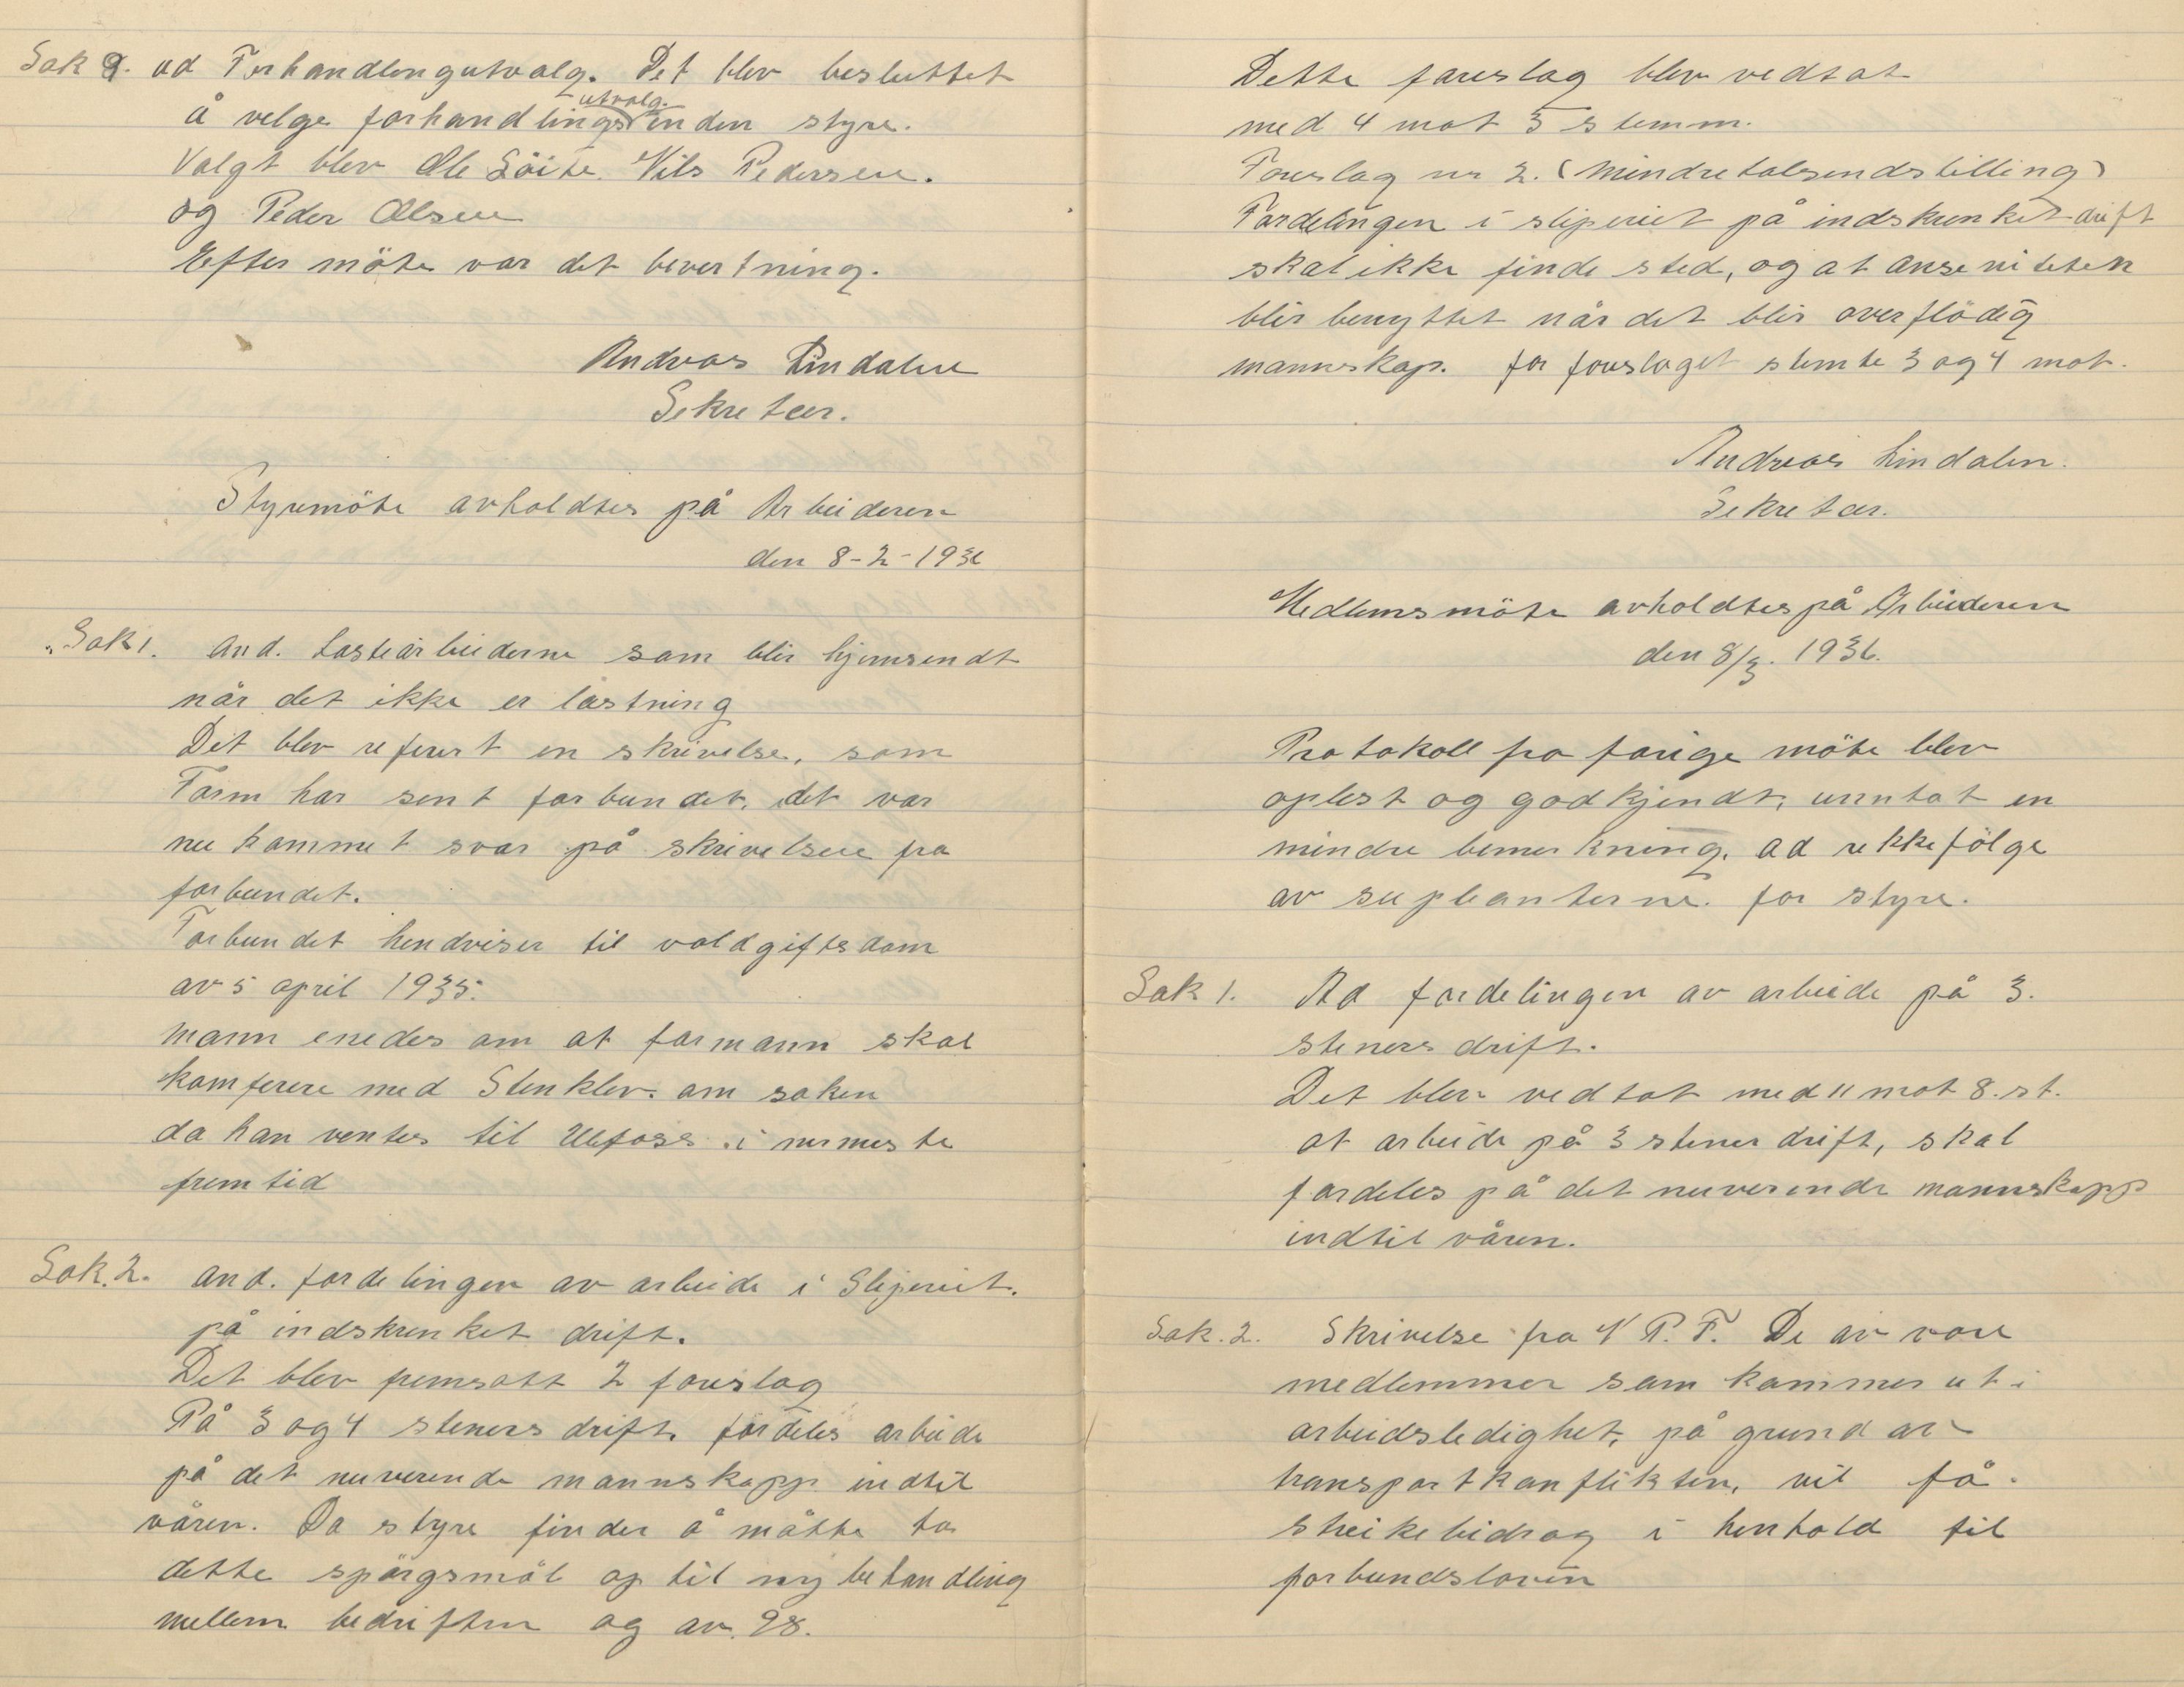 Sak 9. ad Forhandlingutvalg. Det blev besluttet
utvalg.
å velge forhandlings inden styre.
Valgt blev Ole Söite. Nils Pedersen.
og Peder Olsen
Efter möte var det bevertning.
Andreas Lindalen
Sekretær.
Styremöte avholdtes på Arbeideren
den 8-2-1936
Sak 1. And. Lastearbeiderne som blir hjemsendt
når det ikke er lastning
Det blev referert en skrivelse, som
Form har sent forbundet, det var
nu kommet svar på skrivelsen fra
forbundet.
Forbundet hendviser til voldgiftsdom
av 5 april 1935.
Mann enedes om at formann skal
komferere med Stenklev. om saken
da han ventes til Ulefoss i nermeste
fremtid
Sak. 2. And. fordelingen av arbeide i Sliperiet.
på indskrenket drift.
Det blev fremsatt 2 forslag
På 3 og 4 steners drift. fordeles arbeide
på det nuverende mannskapp indtil
våren. Da styre finder å måtte ta
dette spörgsmål op til ny behandling
mellem bedriften og av. 98.
Dette forslag blev vedtat
med 4 mot 3 stemm.
Forslag nr 2. (Mindretalsendstilling)
Fordelingen i sliperiet på indskrenket drift
skal ikke finde sted, og at anseniteten
blir benyttet når det blir overflödig
mannskap. for forslaget stemte 3 og 4 mot.
Andreas Lindalen.
Sekretær.
Medlemsmöte avholdtes på Arbeideren
den 8/3. 1936.
Protokoll fra forige möte blev
oplest og godkjendt, unntat en
mindre bemerkning, ad rekkefölge
av supleanterne. for styre.
Sak 1. Ad fordelingen av arbeide på 3.
steners drift.
Det blev vedtat med 11 mot 8. st.
at arbeide på 3 stener drift, skal
fordeles på det nuverende mannskapp
indtil våren.
Sak. 2. Skrivelse fra N P. F. De av vore
medlemmer som kommer ut i
arbeidsledighet, på grund av
transportkonflikten, vil få.
streikebidrag i henhold til
forbundsloven